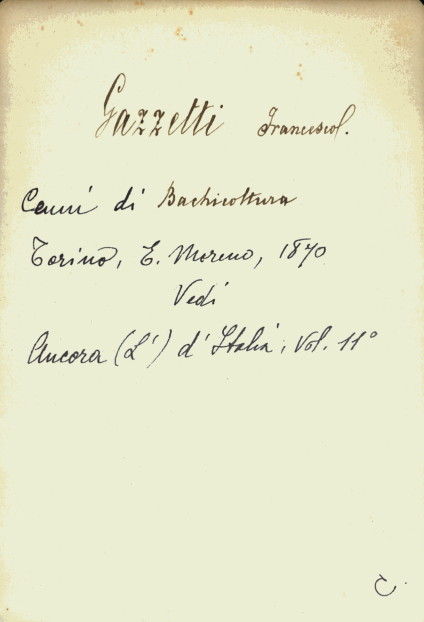 Gazzetti Francesco.
Cenni di Bachicoltura
Torino, E. Moreno, 1870
Vedi
Ancora (L') d'Italia, Vol. 11º
C.